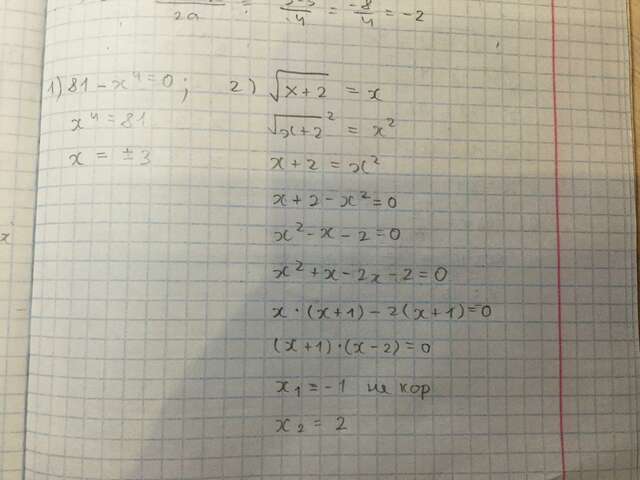 2a = -4 = -8/4 = -2
1) 81 - x⁴ = 0 ;
x⁴ = 81
x = ±3
2) √(x+2) = x
√(x+2)² = x²
x + 2 = x²
x + 2 - x² = 0
x² - x - 2 = 0
x² + x - 2x - 2 = 0
x · (x+1) - 2(x+1) = 0
(x+1) · (x-2) = 0
x₁ = -1 не кор
x₂ = 2